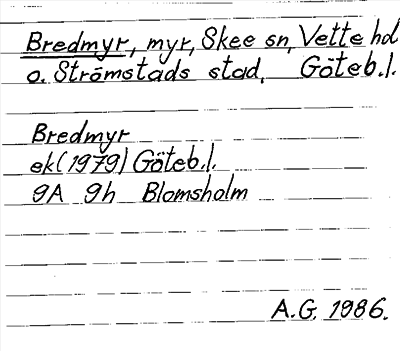 Bredmyr, myr, Skee sn, Vette hd
o. Strömstads stad, Göteb.l.
Bredmyr
ek (1979) Göteb.l.
9A 9h Blomsholm
A.G. 1986.